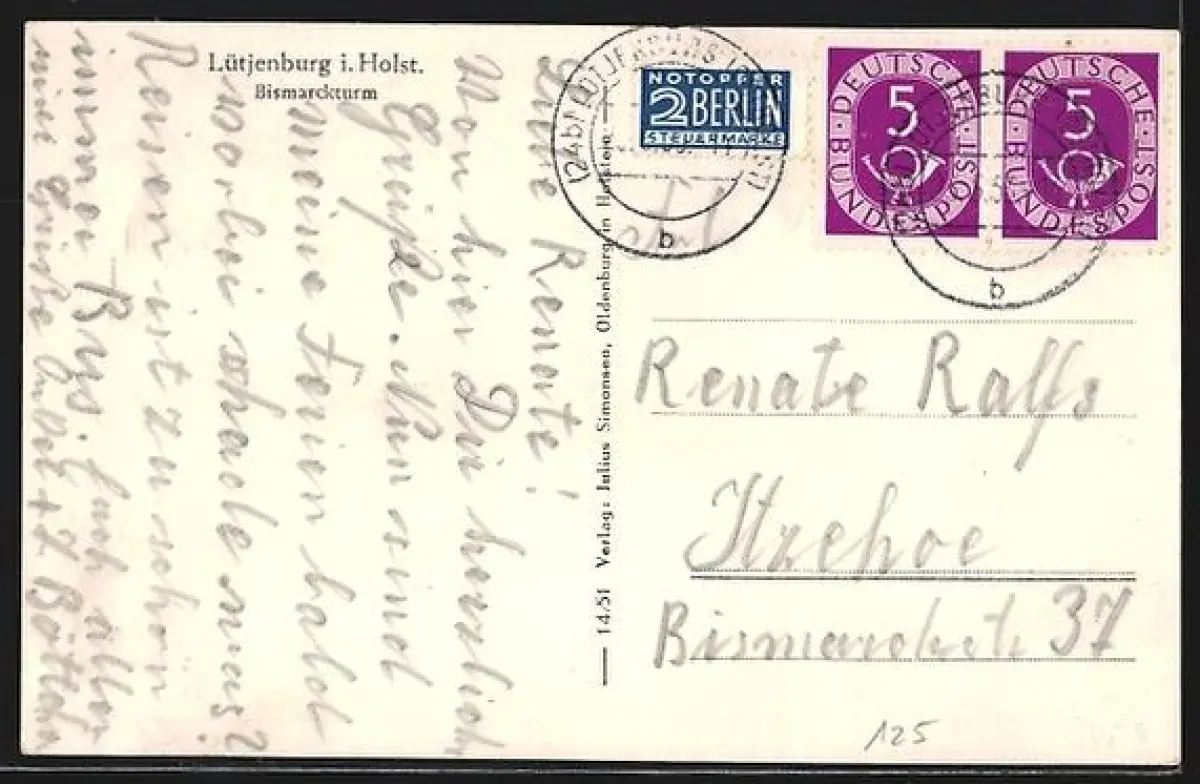 Lütjenburg i. Holst.
Bismarckturm
Liebe Renate!
Von hier Dir herzlich
Grüße. Nun sind
Meine Ferien bald
vorbei schade was?
Reisen ist zu schön
immer
14/51 Verlag: Julius Simonsen, Oldenburg in Holstein
(24b) LÜTJENBURG
b
NOTOPFER
2 BERLIN
STEUERMARKE
5
DEUTSCHE BUNDESPOST
5
DEUTSCHE BUNDESPOST
b
Renate Ralfs
Itzehoe
Bismarckstr 37
125